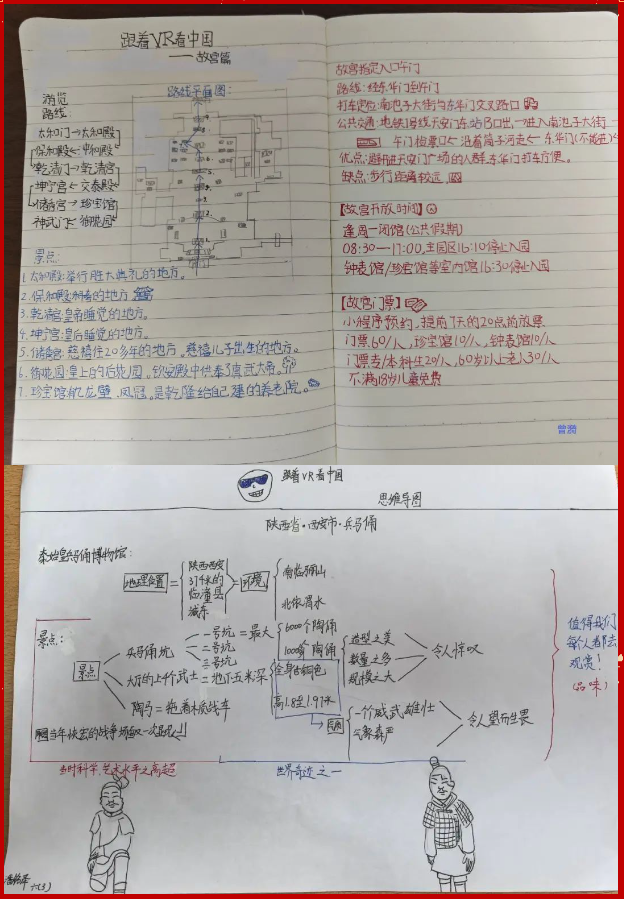 跟着VR看中国
——故宫篇
游览
路线:
路线平面图:
太和门→太和殿
保和殿←中和殿
乾清门→乾清宫
坤宁宫←交泰殿
储秀宫→珍宝馆
神武门←御花园
景点:
1.太和殿:举行盛大典礼的地方。
3.乾清宫:皇帝睡觉的地方。
4.坤宁宫:皇后睡觉的地方。
5.储秀宫:慈禧住20多年的地方,慈禧儿子出生的地方。
6.御花园:皇上的后花园。钦安殿中供奉了真武大帝。
7.珍宝馆:九龙壁、凤冠,是乾隆给自己建的养老院。
故宫指定入口午门
路线:经东华门到午门
打车定位:南池子大街与东华门交叉路口
公共交通:地铁1号线天安门东站B口出→进入南池子大街→
午门检票口←沿着筒子河走←东华门(不能进)
优点:避开进天安门广场的人群,东华门打车方便。
缺点:步行距离较远。
【故宫开放时间】
逢周一闭馆(公共假期)
08:30—17:00,主园区16:10停止入园
钟表馆/珍宝馆等室内馆16:30停止入园
【故宫门票】
小程序预约,提前7天的20点前放票
门票60/人,珍宝馆10/人,钟表馆10/人
门票专/本科生20/人,60岁以上老人30/人
不满18岁儿童免费
曾潤
跟着VR看中国
思维导图
陕西省·西安市·兵马俑
秦始皇兵马俑博物馆:
地理位置
=
陕西西安
37千米的
临潼县
城东
=
环境
南临骊山
北依渭水
景点:
景点
兵马俑坑
一号坑=最大
二号坑
三号坑
6000个陶俑
造型之美
数量之多
规模之大
令人惊叹
=地下五米深
全身古铜色
高1.8至1.97米
陶马=拖着木质战车
一个个威武雄壮
气象森严
令人望而生畏
值得我们
每个人都去
观赏!
(品味)
当时科学、艺术水平之高超
世界奇迹之一
六(3)